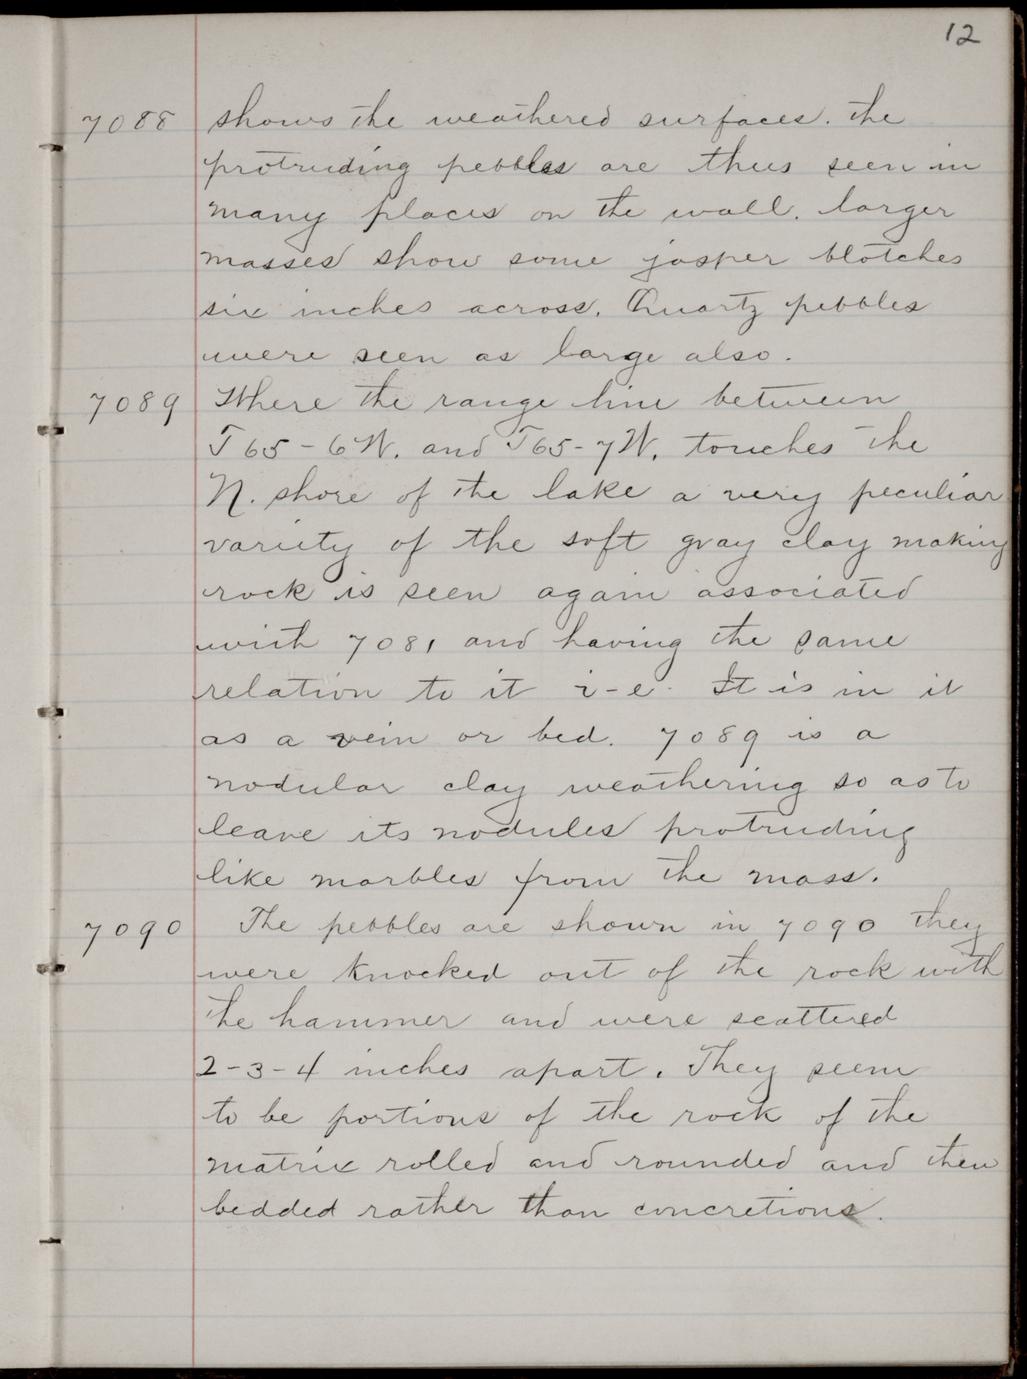 12
7088 shows the weathered surfaces. the
protruding pebbles are thus seen in
many places on the wall. larger
masses show some jasper blotches
six inches across. Quartz pebbles
were seen as large also.
7089 Where the range line between
T 65-6 W. and T65-7 W. touches the
N. shore of the lake a very peculiar
variety of the soft gray clay making
rock is seen again associated
with 7081 and having the same
relation to it i-e. It is in it
as a vein or bed. 7089 is a
nodular clay weathering so as to
leave its nodules protruding
like marbles from the mass.
7090 The pebbles are shown in 7090 they
were knocked out of the rock with
the hammer and were scattered
2-3-4 inches apart. They seem
to be portions of the rock of the
matrix rolled and rounded and then
bedded rather than concretions.